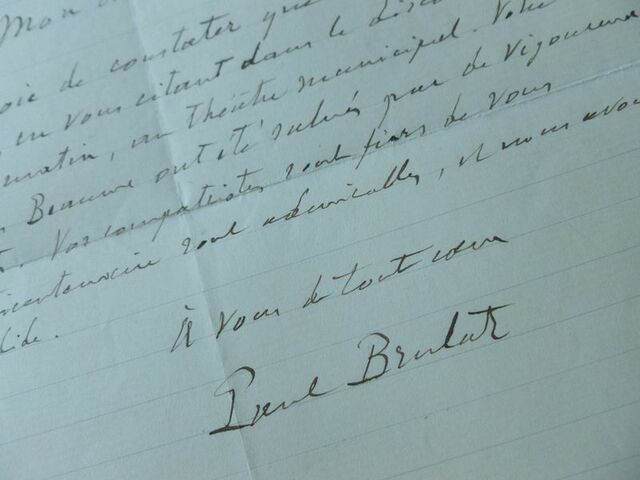 Mon
oie de constater que
en vous citant dans le disco
matin, au théâtre municipal. Votre
Beaume ont été salués par de vigoureux
. Vos compatriotes sont fiers de vous
centenaire sont admirables, et nous avons
lide.
À vous de tout cœur
Paul Brulat